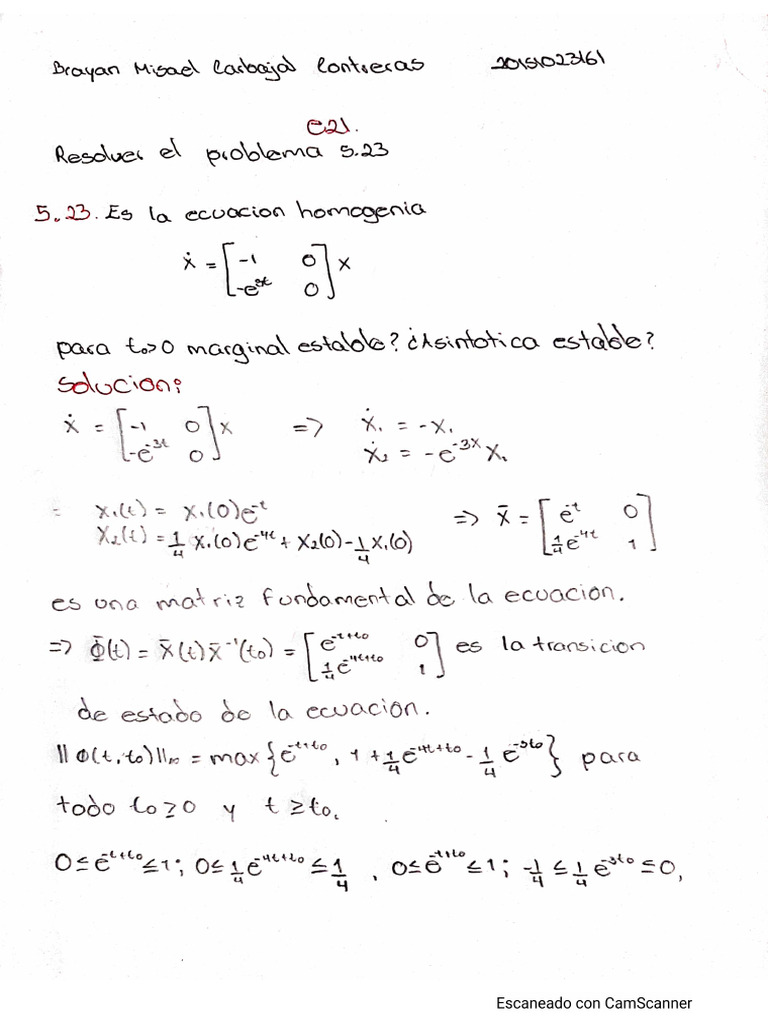 Brayan Misael Carbajal Contreras 201S1023161
C21.
Resolver el problema 5.23
5.23. Es la ecuacion homogenia
ẋ = [-1 0; -e^3t 0] x
para to>0 marginal estable? ¿Asintotica estable?
Solucion:
ẋ = [-1 0; -e^-3t 0] x => ẋ₁ = -x₁
ẋ₂ = -e^-3x x₁
= x₁(t) = x₁(0)e^-t
x₂(t) = 1/4 x₁(0)e^-4t + x₂(0) - 1/4 x₁(0) => X̄ = [e^-t 0; 1/4 e^-4t 1]
es una matriz fundamental de la ecuacion.
=> Φ̄(t) = X̄(t)X̄^-1(to) = [e^-t+to 0; 1/4 e^-4t+to 1] es la transicion
de estado de la ecuacion.
||Φ(t,to)||∞ = max{e^-t+to, 1 + 1/4 e^-4t+to - 1/4 e^-3to} para
todo to≥0 y t≥to.
0≤e^-t+to≤1; 0≤1/4 e^-4t+to ≤1/4, 0≤e^-t+to≤1; -1/4 ≤ 1/4 e^-3to ≤0,
Escaneado con CamScanner